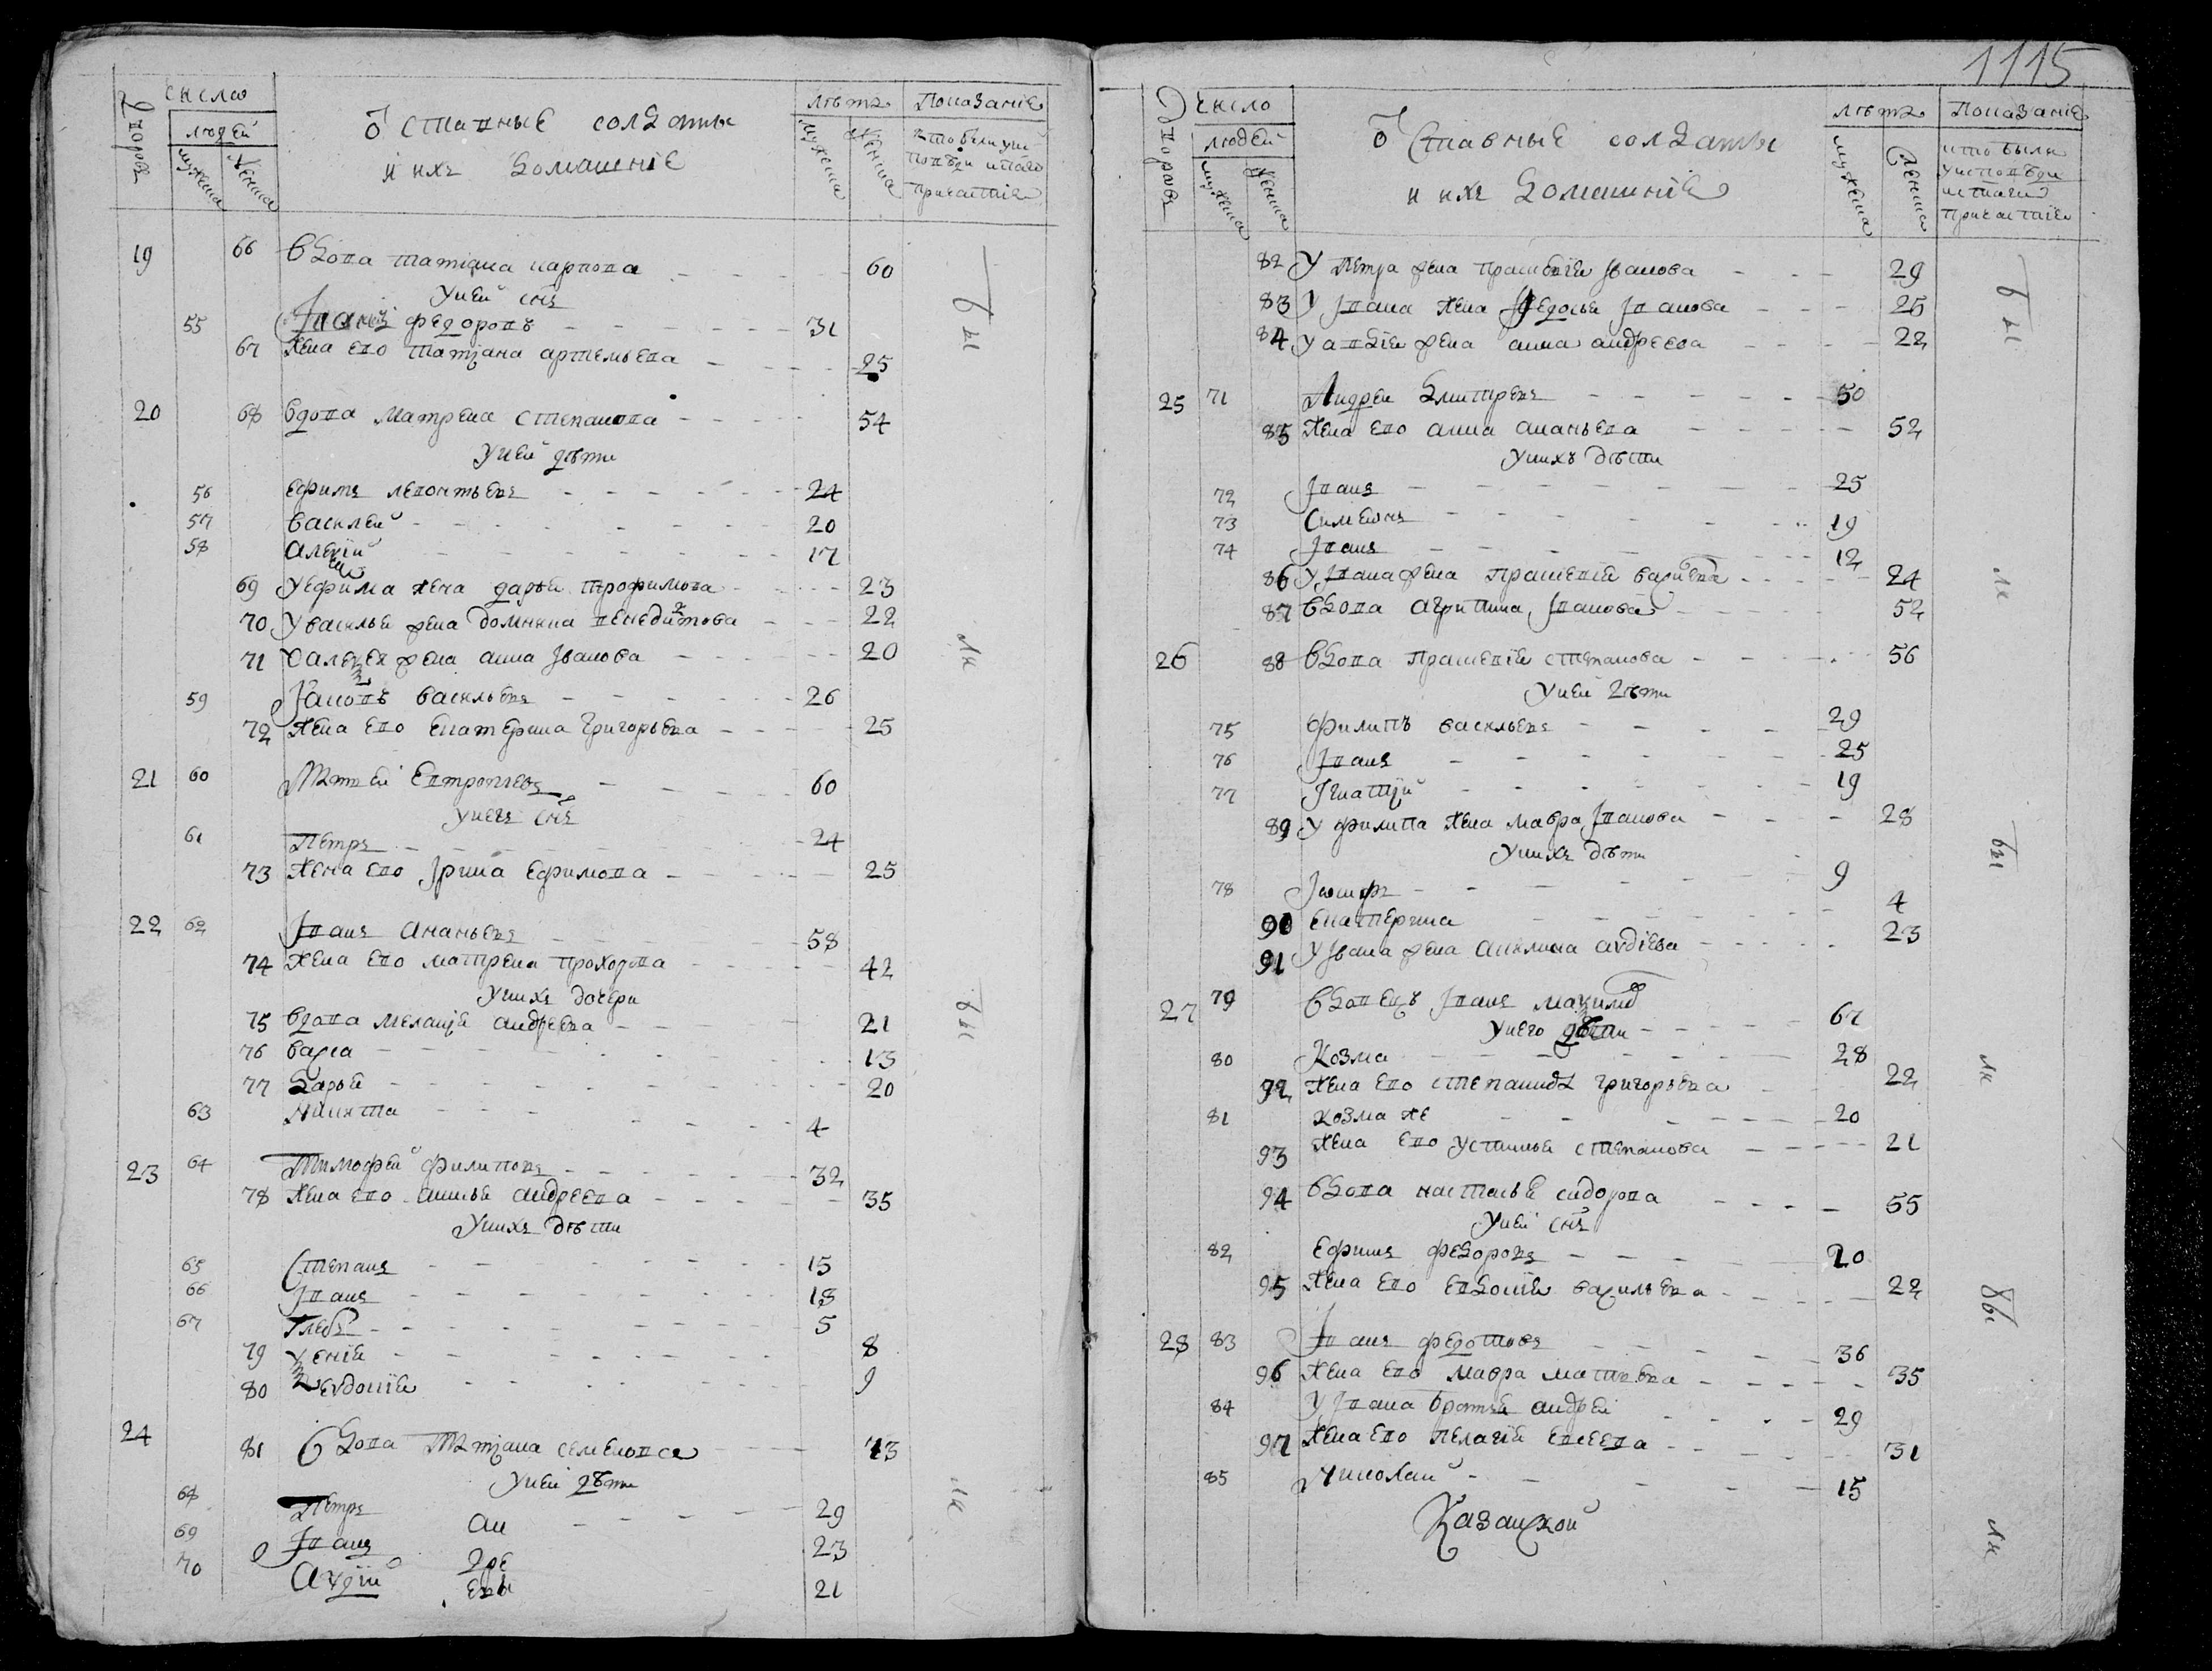 1115
число
Дворовъ
людей
мужеска
женска
ѿставные солдаты
и ихъ домашніе
лѣтъ
мужеска
женска
Показаніе
кто были у исповѣди и святаго причастія
19 66 вдова татіана карпова 60
у ней снъ
55 Іванъ федоровъ 31
67 жена ево татіана артемьева 25
20 68 вдова матрена степанова 54
у ней дѣти
56 ефимъ леонтьевъ 24
57 василей 20
58 алексѣй 17
69 у ефима жена дарья трофимова 23
70 у василья жена домника 22
71 у алексея жена анна Іванова 20
59 Іаковъ васильевъ 26
72 жена ево екатерина григорьева 25
21 60 Матвей Евтропиевъ 60
у него снъ
61 Петръ 24
73 жена ево Ірина ефимова 25
22 62 Іванъ ананьевъ 58
74 жена ево матрена прохорова 42
у нихъ дочери
75 вдова меланія андреева 21
76 васса 13
77 дарья 20
63 никита 4
23 64 Тимофей филиповъ 32
78 жена ево анисья андреева 35
у нихъ дѣти
65 Степанъ 15
66 Іванъ 13
67 Глебъ 5
79 ксенія 8
80 евдокія 9
24 81 вдова Татіана семенова 43
у ней дѣти
68 Петръ 29
69 Іванъ 23
70 Авдій 21
ан
дре
евы
были
были
число
Дворовъ
людей
мужеска
женска
ѿставные солдаты
и ихъ домашніе
лѣтъ
мужеска
женска
Показаніе
кто были
у исповѣди
и святаго
причастія
82 У Петра жена прасковия Іванова 29
83 У Івана жена федосья Іванова 25
84 У авдія жена анна андреева 22
25 71 Андрей дмитревъ 50
85 жена ево анна ананьева 52
у нихъ дѣти
72 Іванъ 25
73 Симеонъ 19
74 Іванъ 12
86 У Івана жена прасковія васильева 24
87 вдова агрипина Іванова 52
26 88 вдова прасковія степанова 56
у ней дѣти
75 филипъ васильевъ 29
76 Іванъ 25
77 Ігнатій 19
89 у филипа жена мавра Іванова 28
у нихъ дѣти
78 Іосифъ 9
90 екатерина 4
91 у Івана жена акилина авдіева 23
27 79 вдовецъ Іванъ максимовъ 67
у него дѣти
80 Козма 28
92 жена ево степанида григорьева 22
81 козма же 20
93 жена ево устинья степанова 21
94 вдова настасья сидорова 55
у ней снъ
82 ефимъ федоровъ 20
95 жена ево евдокія васильева 22
28 83 Іванъ федотовъ 36
96 жена ево мавра матвеева 35
84 У Івана братья андрей 29
97 жена ево пелагія евсеева 31
85 Николай 15
Казанской
были
были
были